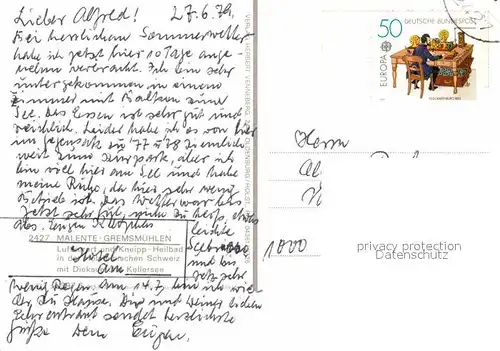 Lieber Alfred! 27.6.79.
Bei herrlichem Sommerwetter
habe ich jetzt hier 10 Tage ange-
nehm verbracht. Ich bin sehr
gut untergekommen, in einem
Zimmer mit Balkon zum
See. Das Essen ist sehr gut und
reichlich. Leider habe ich es von hier
im Gegensatz zu 77 + 78 ziemlich
weit zum Kurpark, aber ich
bin viel hier am See und habe
meine Ruhe, da hier sehr wenig
Betrieb ist. Das Wetter war bis
jetzt sehr gut, nicht zu heiß, etwas
leichte
2427 MALENTE-GREMSMÜHLEN
Luftkurort und Kneipp-Heilbad
in der Holsteinischen Schweiz
mit Dieksee und Kellersee
Hotel
am
und bis
jetzt sehr
wenig Regen. Am 14.7. bin ich wie
zu Hause. Dir und
sendet herzlichste
Grüße Dein Eugen.
VERLAG HERBERT VENNEBERG, 2440 OLDENBURG / HOLST.
50 DEUTSCHE BUNDESPOST
EUROPA
Herrn
Al
1000
privacy protection
Datenschutz